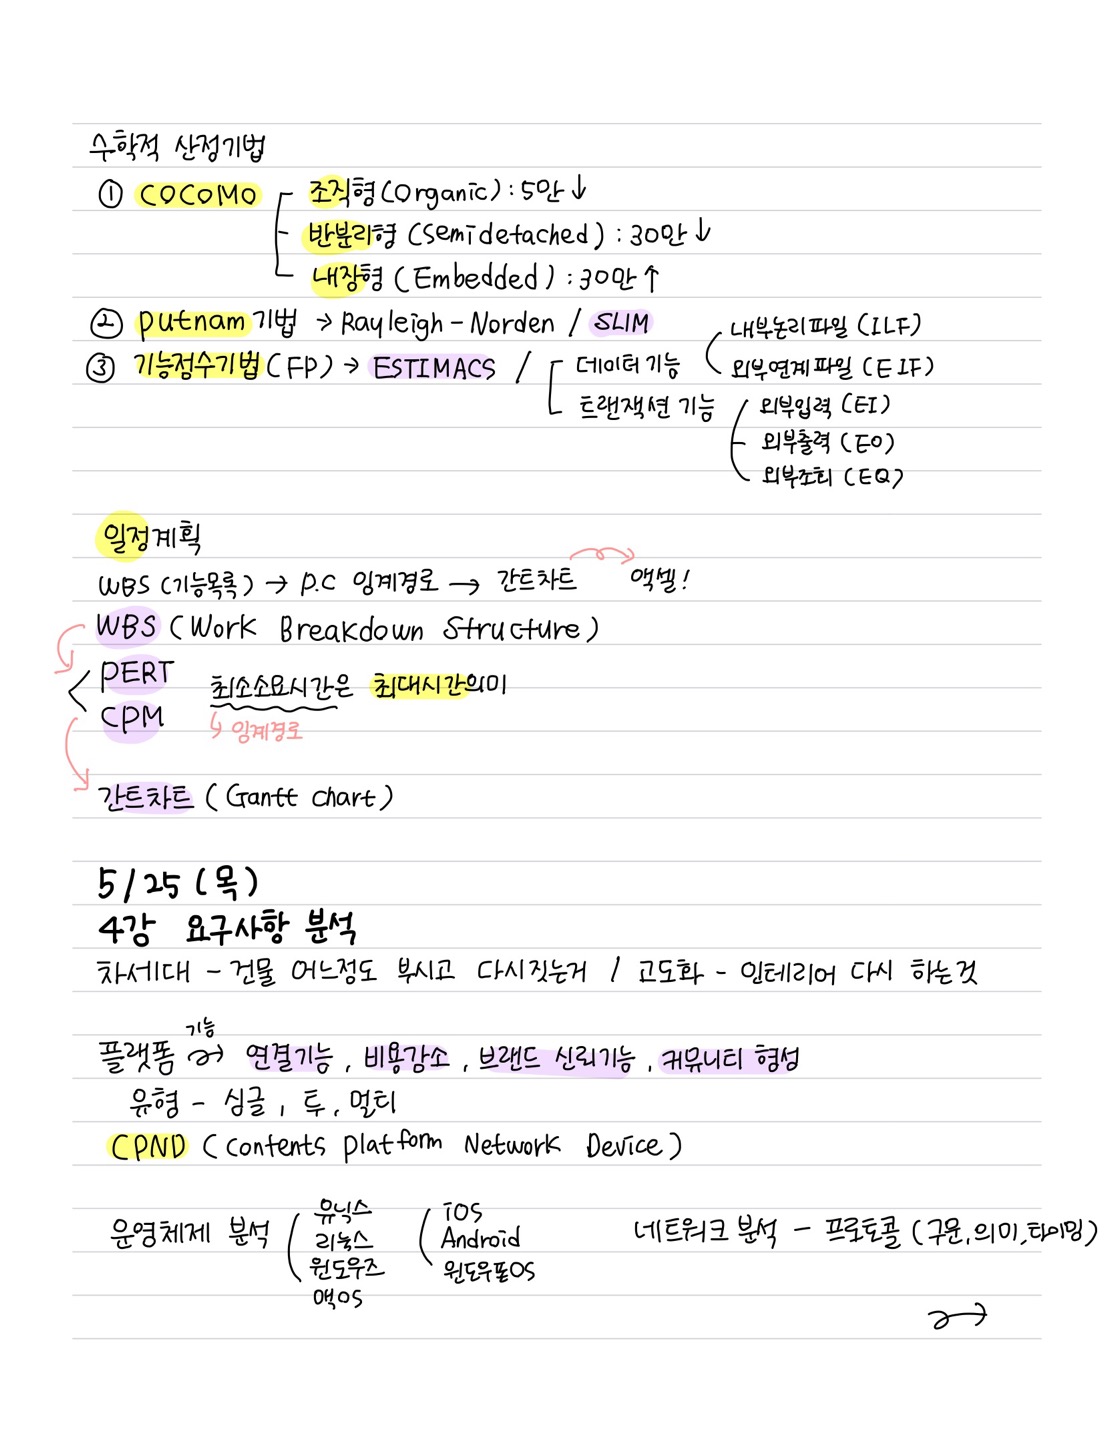 수학적 산정기법
① COCOMO 조직형(Organic) : 5만↓
반분리형 (Semidetached) : 30만↓
내장형 (Embedded) : 30만↑
② Putnam기법 → Rayleigh-Norden / SLIM
③ 기능점수기법(FP) → ESTIMACS / 데이터 기능 내부논리파일 (ILF)
외부연계파일 (EIF)
트랜잭션 기능 외부입력 (EI)
외부출력 (EO)
외부조회 (EQ)
일정계획
WBS (기능목록) → P.C 임계경로 → 간트차트 액셀!
WBS (Work Breakdown Structure)
PERT
최소소요시간은 최대시간의미
CPM
↳ 임계경로
간트차트 (Gantt chart)
5/25 (목)
4강 요구사항 분석
차세대 - 건물 어느정도 부시고 다시짓는거 / 고도화 - 인테리어 다시 하는것
기능
플랫폼 → 연결기능, 비용감소, 브랜드 신뢰기능, 커뮤니티 형성
유형 - 싱글, 투, 멀티
CPND (Contents Platform Network Device)
운영체제 분석 유닉스 iOS
리눅스 Android
윈도우즈 윈도우폰OS
맥OS
네트워크 분석 - 프로토콜 (구문,의미,타이밍)
→